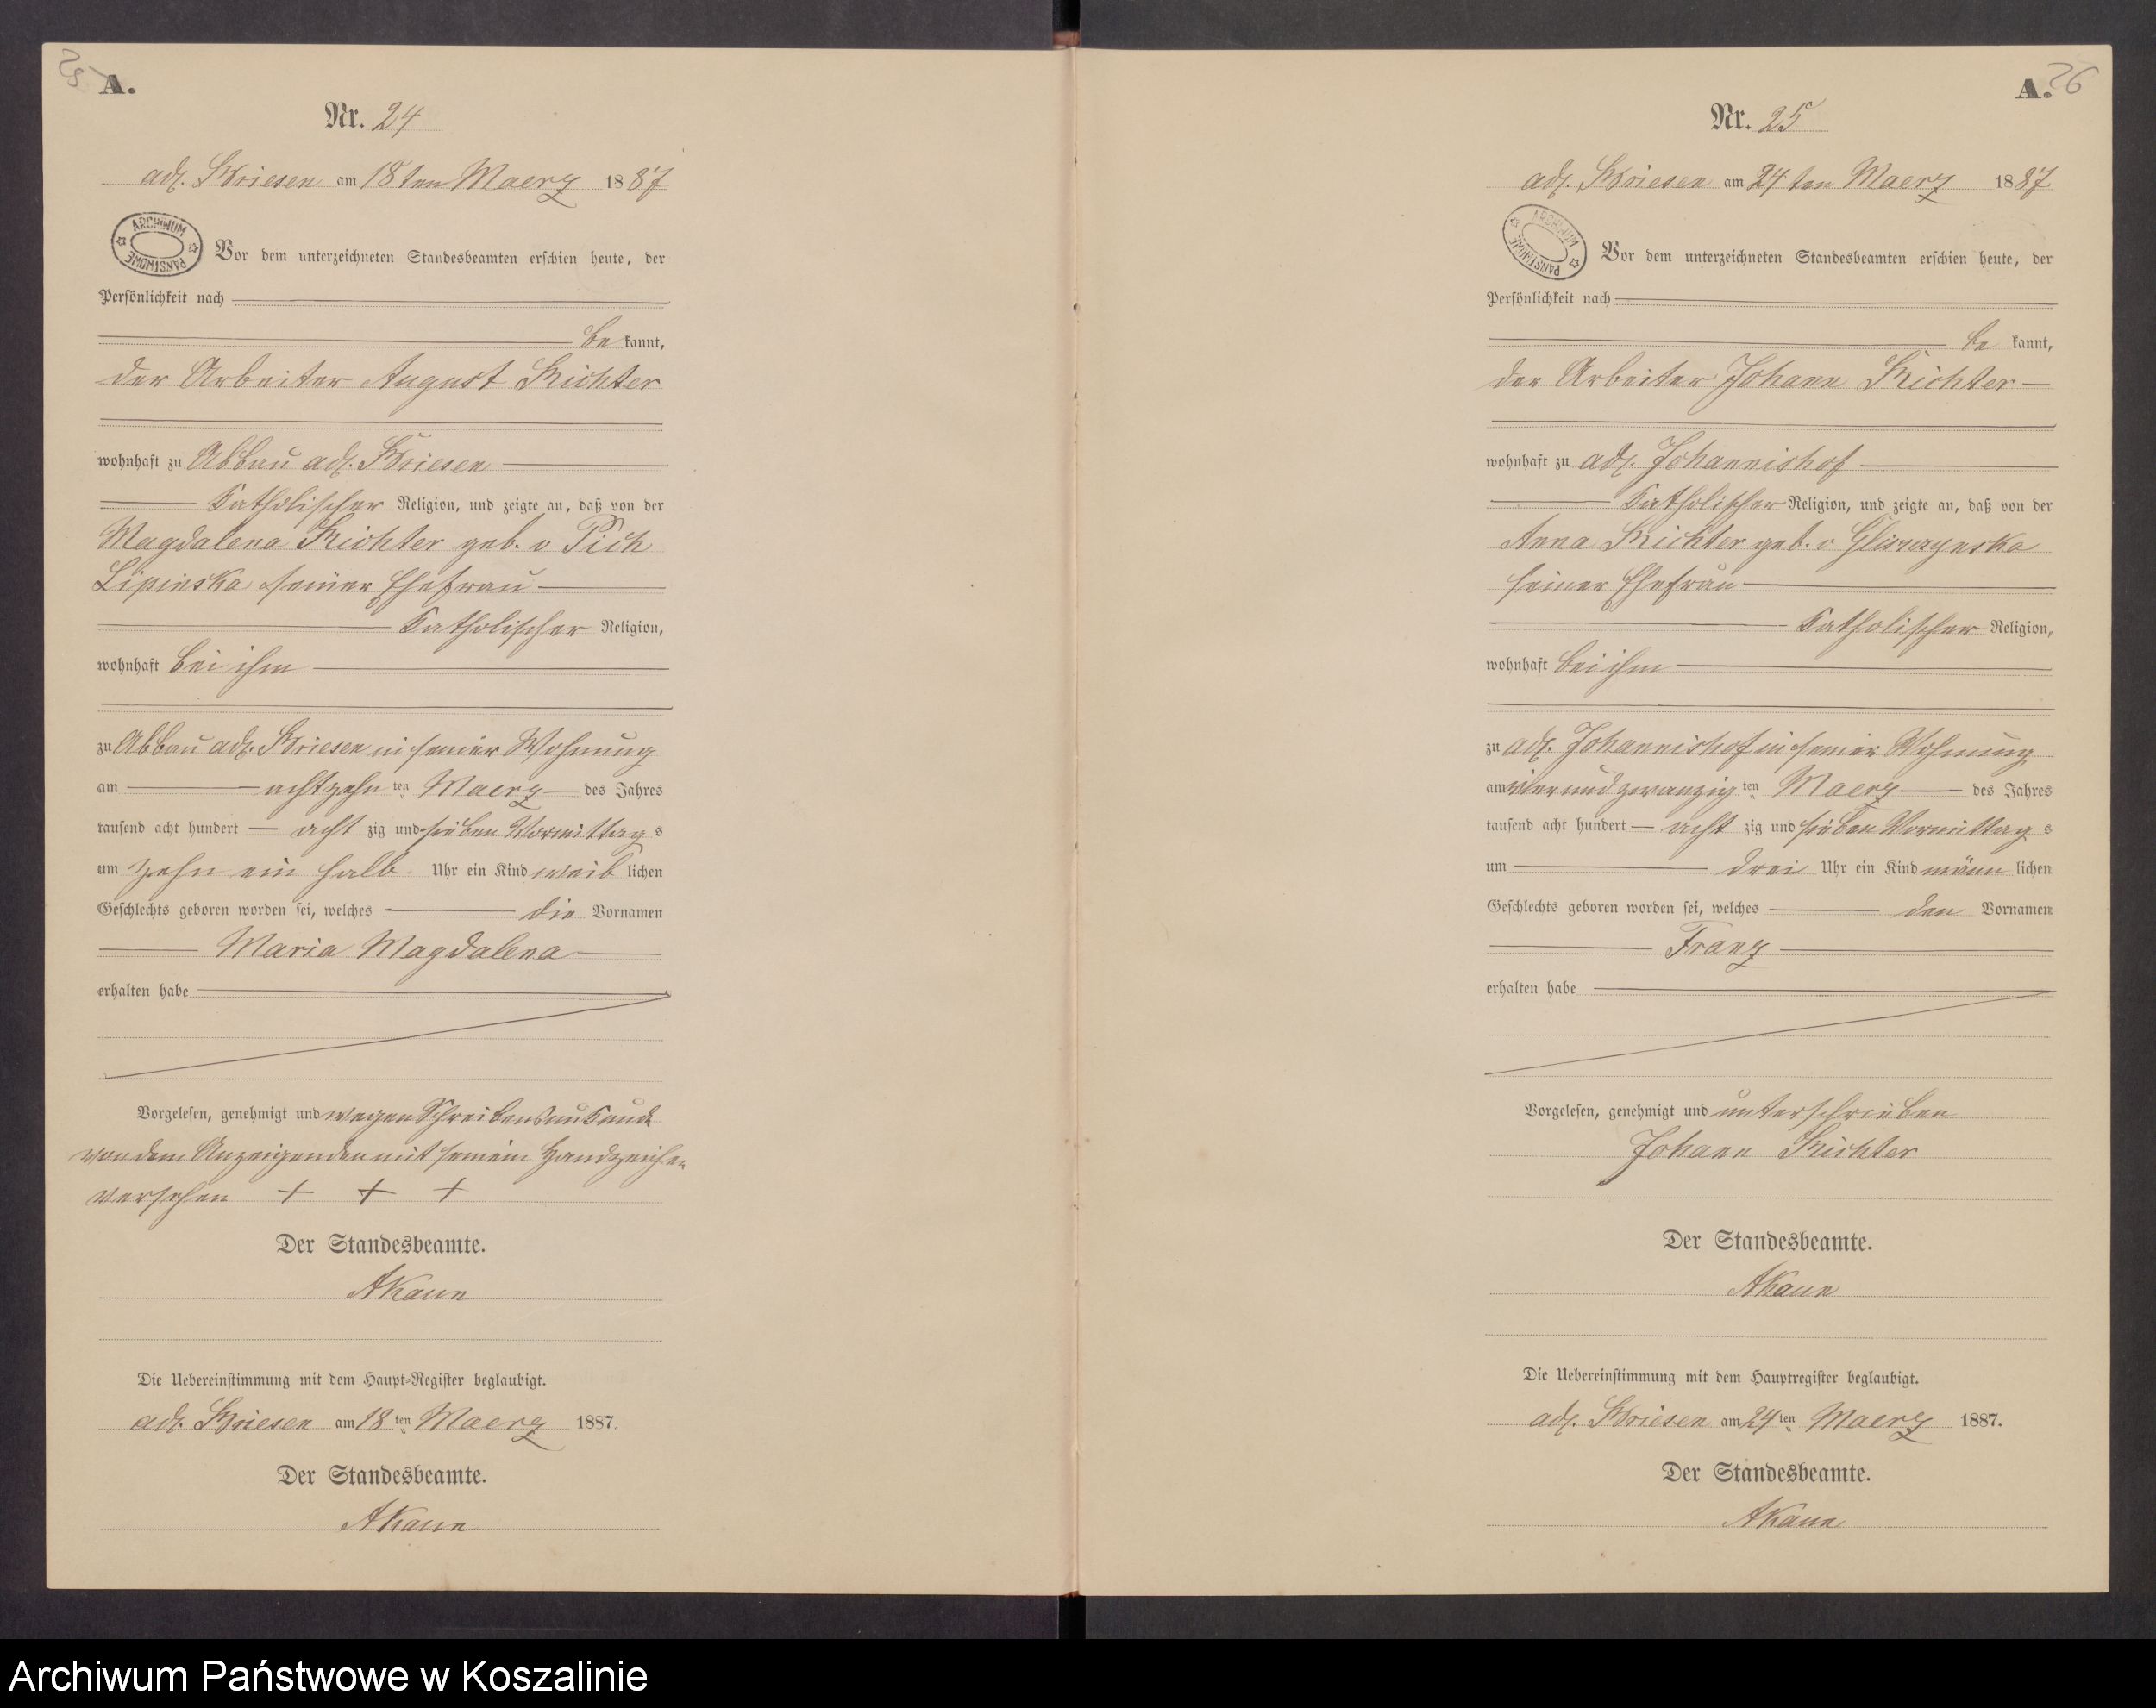 25
A.
Nr. 24
adl. Briesen am 18ten Maerz 1887
ARCHIWUM PAŃSTWOWE
Vor dem unterzeichneten Standesbeamten erschien heute, der
Persönlichkeit nach
be kannt,
der Arbeiter August Richter
wohnhaft zu Abbau adl. Briesen
Katholischer Religion, und zeigte an, daß von der
Magdalena Richter geb. v Pich
Lipinska seiner Ehefrau
Katholischer Religion,
wohnhaft bei ihm
zu Abbau adl. Briesen in seiner Wohnung
am achtzehn ten Maerz des Jahres
tausend acht hundert acht zig und sieben Vormittag s
um zehn ein halb Uhr ein Kind weib lichen
Geschlechts geboren worden sei, welches die Vornamen
Maria Magdalena
erhalten habe
Vorgelesen, genehmigt und wegen Schreibensunkunde
von dem Anzeigenden mit seinem Handzeichen
versehen + + +
Der Standesbeamte.
Die Uebereinstimmung mit dem Haupt-Register beglaubigt.
adl. Briesen am 18 ten Maerz 1887.
Der Standesbeamte.
A. 26
Nr. 25
adl. Briesen am 24ten Maerz 1887
ARCHIWUM PAŃSTWOWE
Vor dem unterzeichneten Standesbeamten erschien heute, der
Persönlichkeit nach
be kannt,
der Arbeiter Johann Richter
wohnhaft zu adl. Johannishof
Katholischer Religion, und zeigte an, daß von der
Anna Richter geb. v
seiner Ehefrau
Katholischer Religion,
wohnhaft bei ihm
zu adl. Johannishof in seiner Wohnung
am vierundzwanzig ten Maerz des Jahres
tausend acht hundert acht zig und sieben Vormittag s
um drei Uhr ein Kind männ lichen
Geschlechts geboren worden sei, welches den Vornamen
Franz
erhalten habe
Vorgelesen, genehmigt und unterschrieben
Johann Richter
Der Standesbeamte.
Die Uebereinstimmung mit dem Hauptregister beglaubigt.
adl. Briesen am 24 ten Maerz 1887.
Der Standesbeamte.
Archiwum Państwowe w Koszalinie